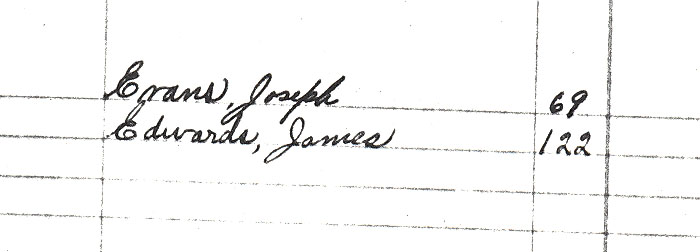 Evans, Joseph 69
Edwards, James 122